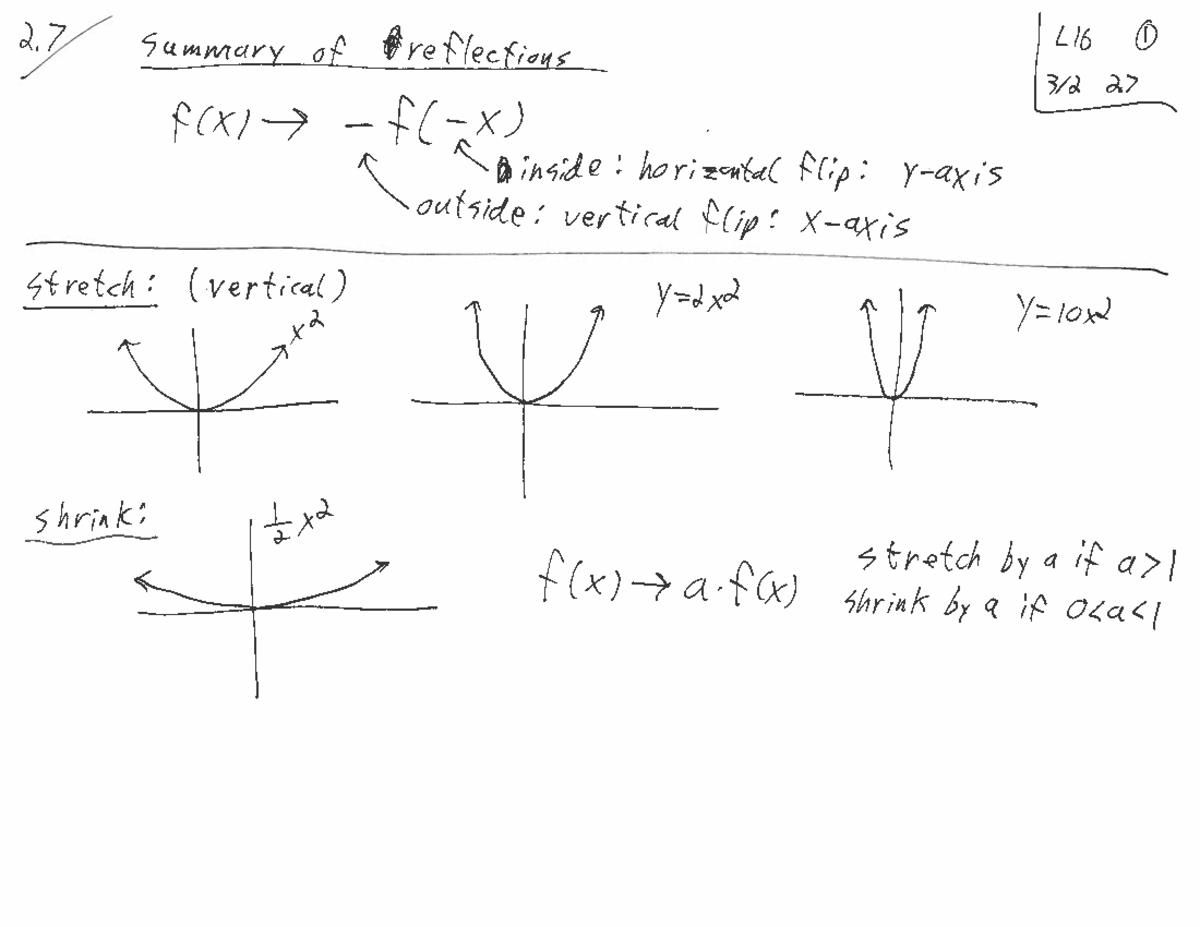 2.7
Summary of reflections
L16 ①
3/2 2.7
f(x) → -f(-x)
inside: horizontal flip: y-axis
outside: vertical flip: x-axis
stretch: (vertical)
x²
y=2x²
y=10x²
shrink:
½x²
f(x) → a·f(x)
stretch by a if a>1
shrink by a if 0<a<1